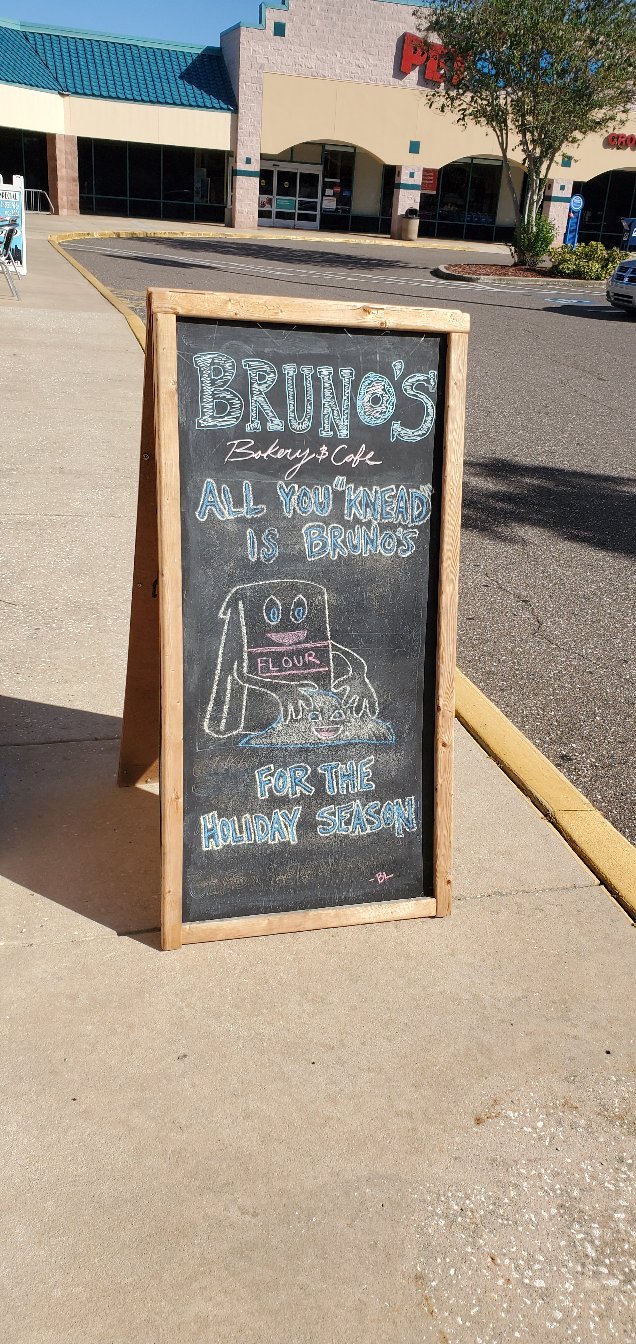 PET
GRO
SPECIAL
BRUNO'S
Bakery & Cafe
ALL YOU "KNEAD"
IS BRUNO'S
FLOUR
FOR THE
HOLIDAY SEASON
-BL